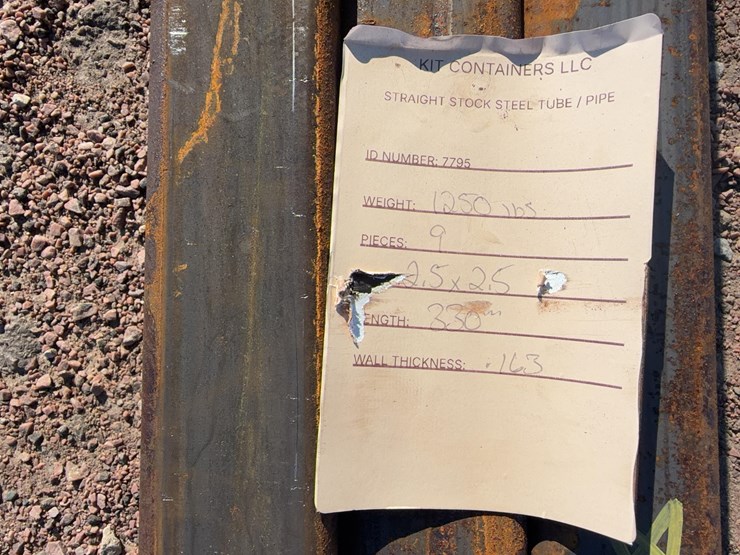 KIT CONTAINERS LLC
STRAIGHT STOCK STEEL TUBE / PIPE
ID NUMBER: 7795
WEIGHT: 1250 lbs
PIECES: 9
2.5 x 2.5
ENGTH: 330
WALL THICKNESS: .163